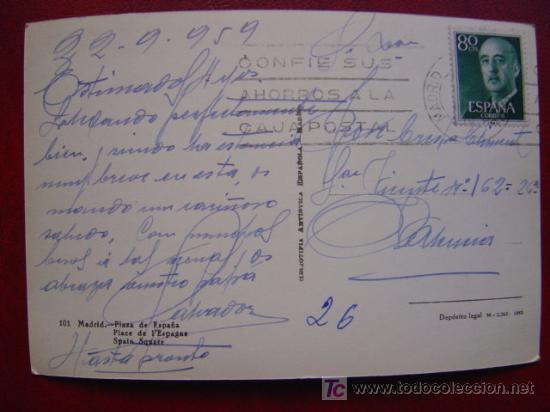 22-9-959
Estimados Hijos
perfectamente
bien, siendo la estancia
muy breve en esta, os
mando un cariñoso
saludo, Con muchos
besos a las nenas, os
abraza vuestro papa
Salvador
101 Madrid.-Plaza de España
Place de l'Espagne
Spain Square
Hasta pronto
HELIOTIPIA ARTÍSTICA ESPAÑOLA
CONFIE SUS
AHORROS A LA
CAJA POSTAL
MADRID
80 CTS
ESPAÑA
CORREOS
San Vicente nº 162-26ª
Valencia
26
Depósito legal
todocoleccion